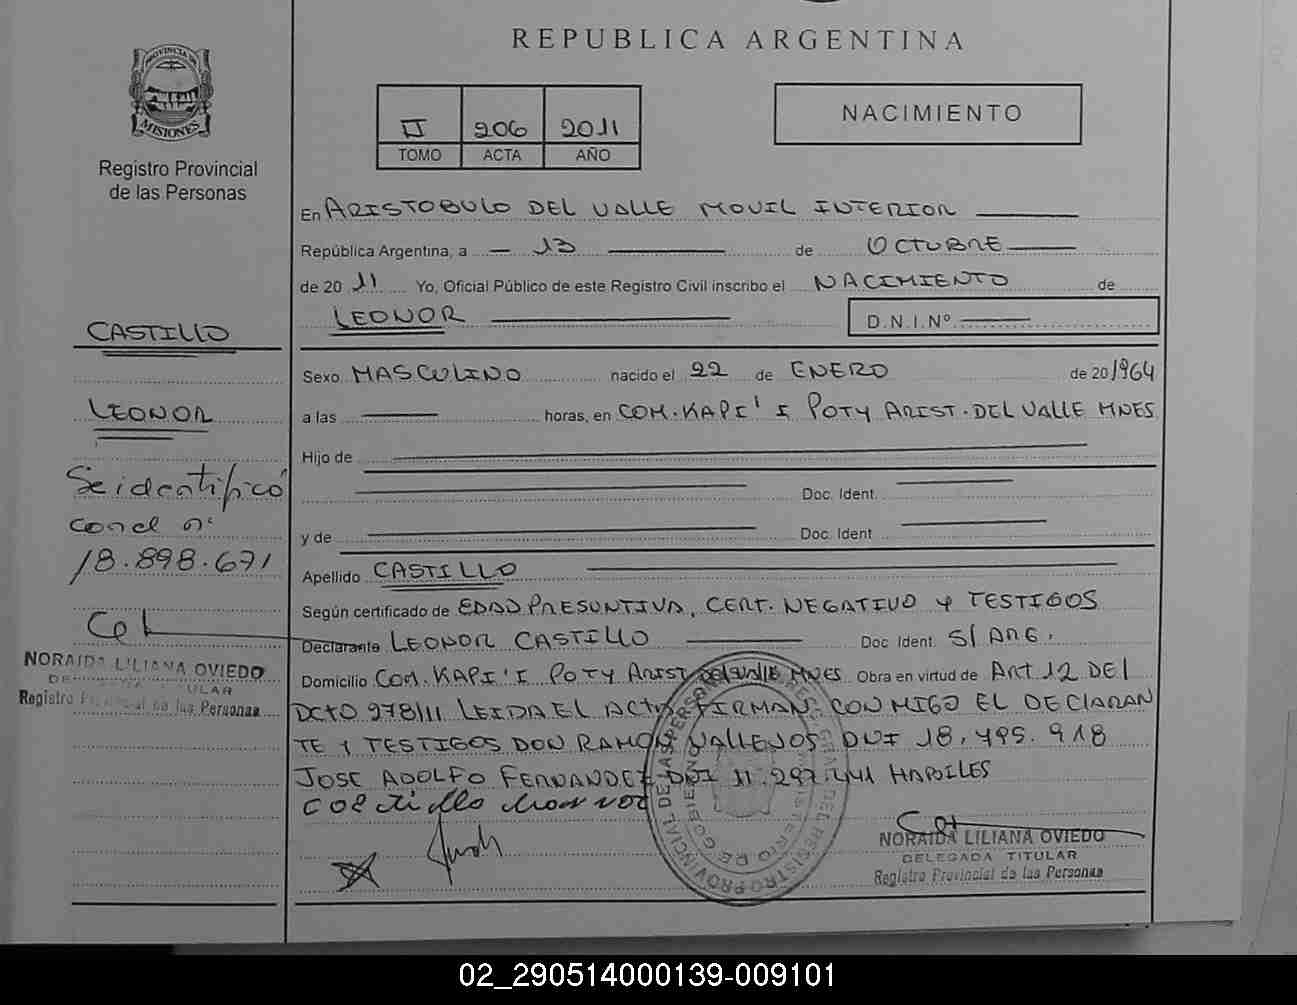 REPUBLICA ARGENTINA
PROVINCIA DE
MISIONES
Registro Provincial
de las Personas
II 206 2011
TOMO ACTA AÑO
NACIMIENTO
En ARISTOBULO DEL VALLE MOVIL INTERIOR
República Argentina, a 13 de OCTUBRE
de 20 11 Yo, Oficial Público de este Registro Civil inscribo el NACIMIENTO de
LEONOR D.N.I.Nº
CASTILLO
LEONOR
Se identificó
con el nº
18.898.671
NORAIDA LILIANA OVIEDO
TITULAR
Registro Provincial de las Personas
Sexo MASCULINO nacido el 22 de ENERO de 20/964
a las horas, en COM. KAPI'I POTY ARIST. DEL VALLE MNES
Hijo de
Doc. Ident.
y de Doc. Ident
Apellido CASTILLO
Según certificado de EDAD PRESUNTIVA, CERT. NEGATIVO Y TESTIGOS
Declarante LEONOR CASTILLO Doc Ident. S/ ARG.
Domicilio COM. KAPI'I POTY ARIST DEL VALLE MNES Obra en virtud de ART 12 DEL
DCTO 278/11 LEIDA EL ACTA FIRMAN CONMIGO EL DECLARAN
TE Y TESTIGOS DON RAMON VALLEJOS DNI 18.495.918
JOSE ADOLFO FERNANDEZ DNI 11.297.441 HABILES
NORAIDA LILIANA OVIEDO
DELEGADA TITULAR
Registro Provincial de las Personas
02_290514000139-009101